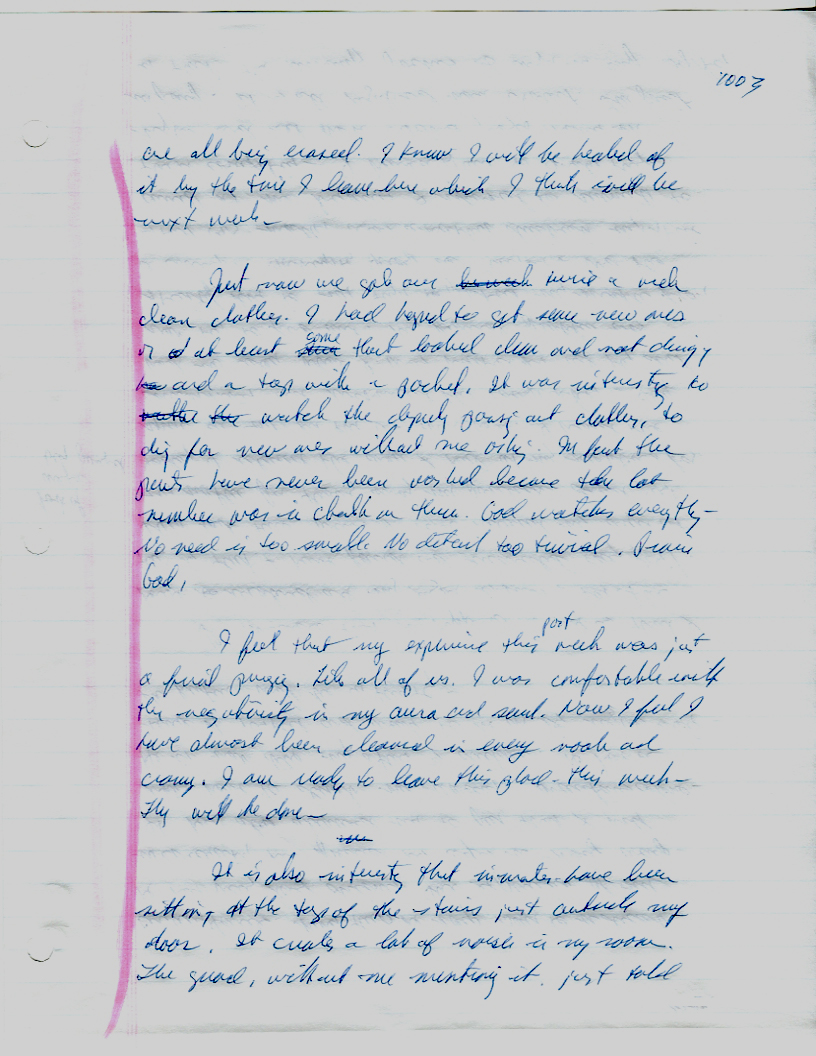 1003
are all being erased. I know I will be healed of
it by the time I leave here which I think will be
next week—
Just now we got our twice a week
clean clothes. I had hoped to get some new ones
or at least some that looked clean and not dingy
and a top with a pocket. It was interesting to
watch the deputy passing out clothes, to
dig for new ones without me asking. In fact the
pants have never been washed because the lot
number was in chalk on them. God watches everything—
No need is too small. No detail too trivial. Praise
God,
I feel that my experience this past week was just
a final purging. Like all of us. I was comfortable with
the negativity in my aura and soul. Now I feel I
have almost been cleansed in every nook and
cranny. I am ready to leave this place this week—
Thy will be done—
It is also interesting that inmates have been
sitting at the top of the stairs just outside my
door. It creates a lot of noise in my room.
The guard, without me mentioning it, just told